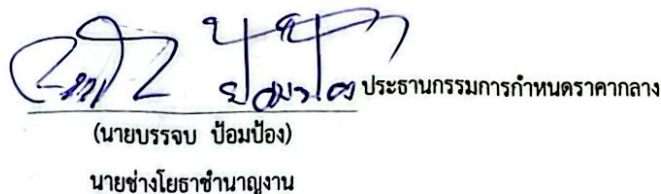 ประธานกรรมการกำหนดราคากลาง
(นายบรรจบ ป้อมป้อง)
นายช่างโยธาชำนาญงาน